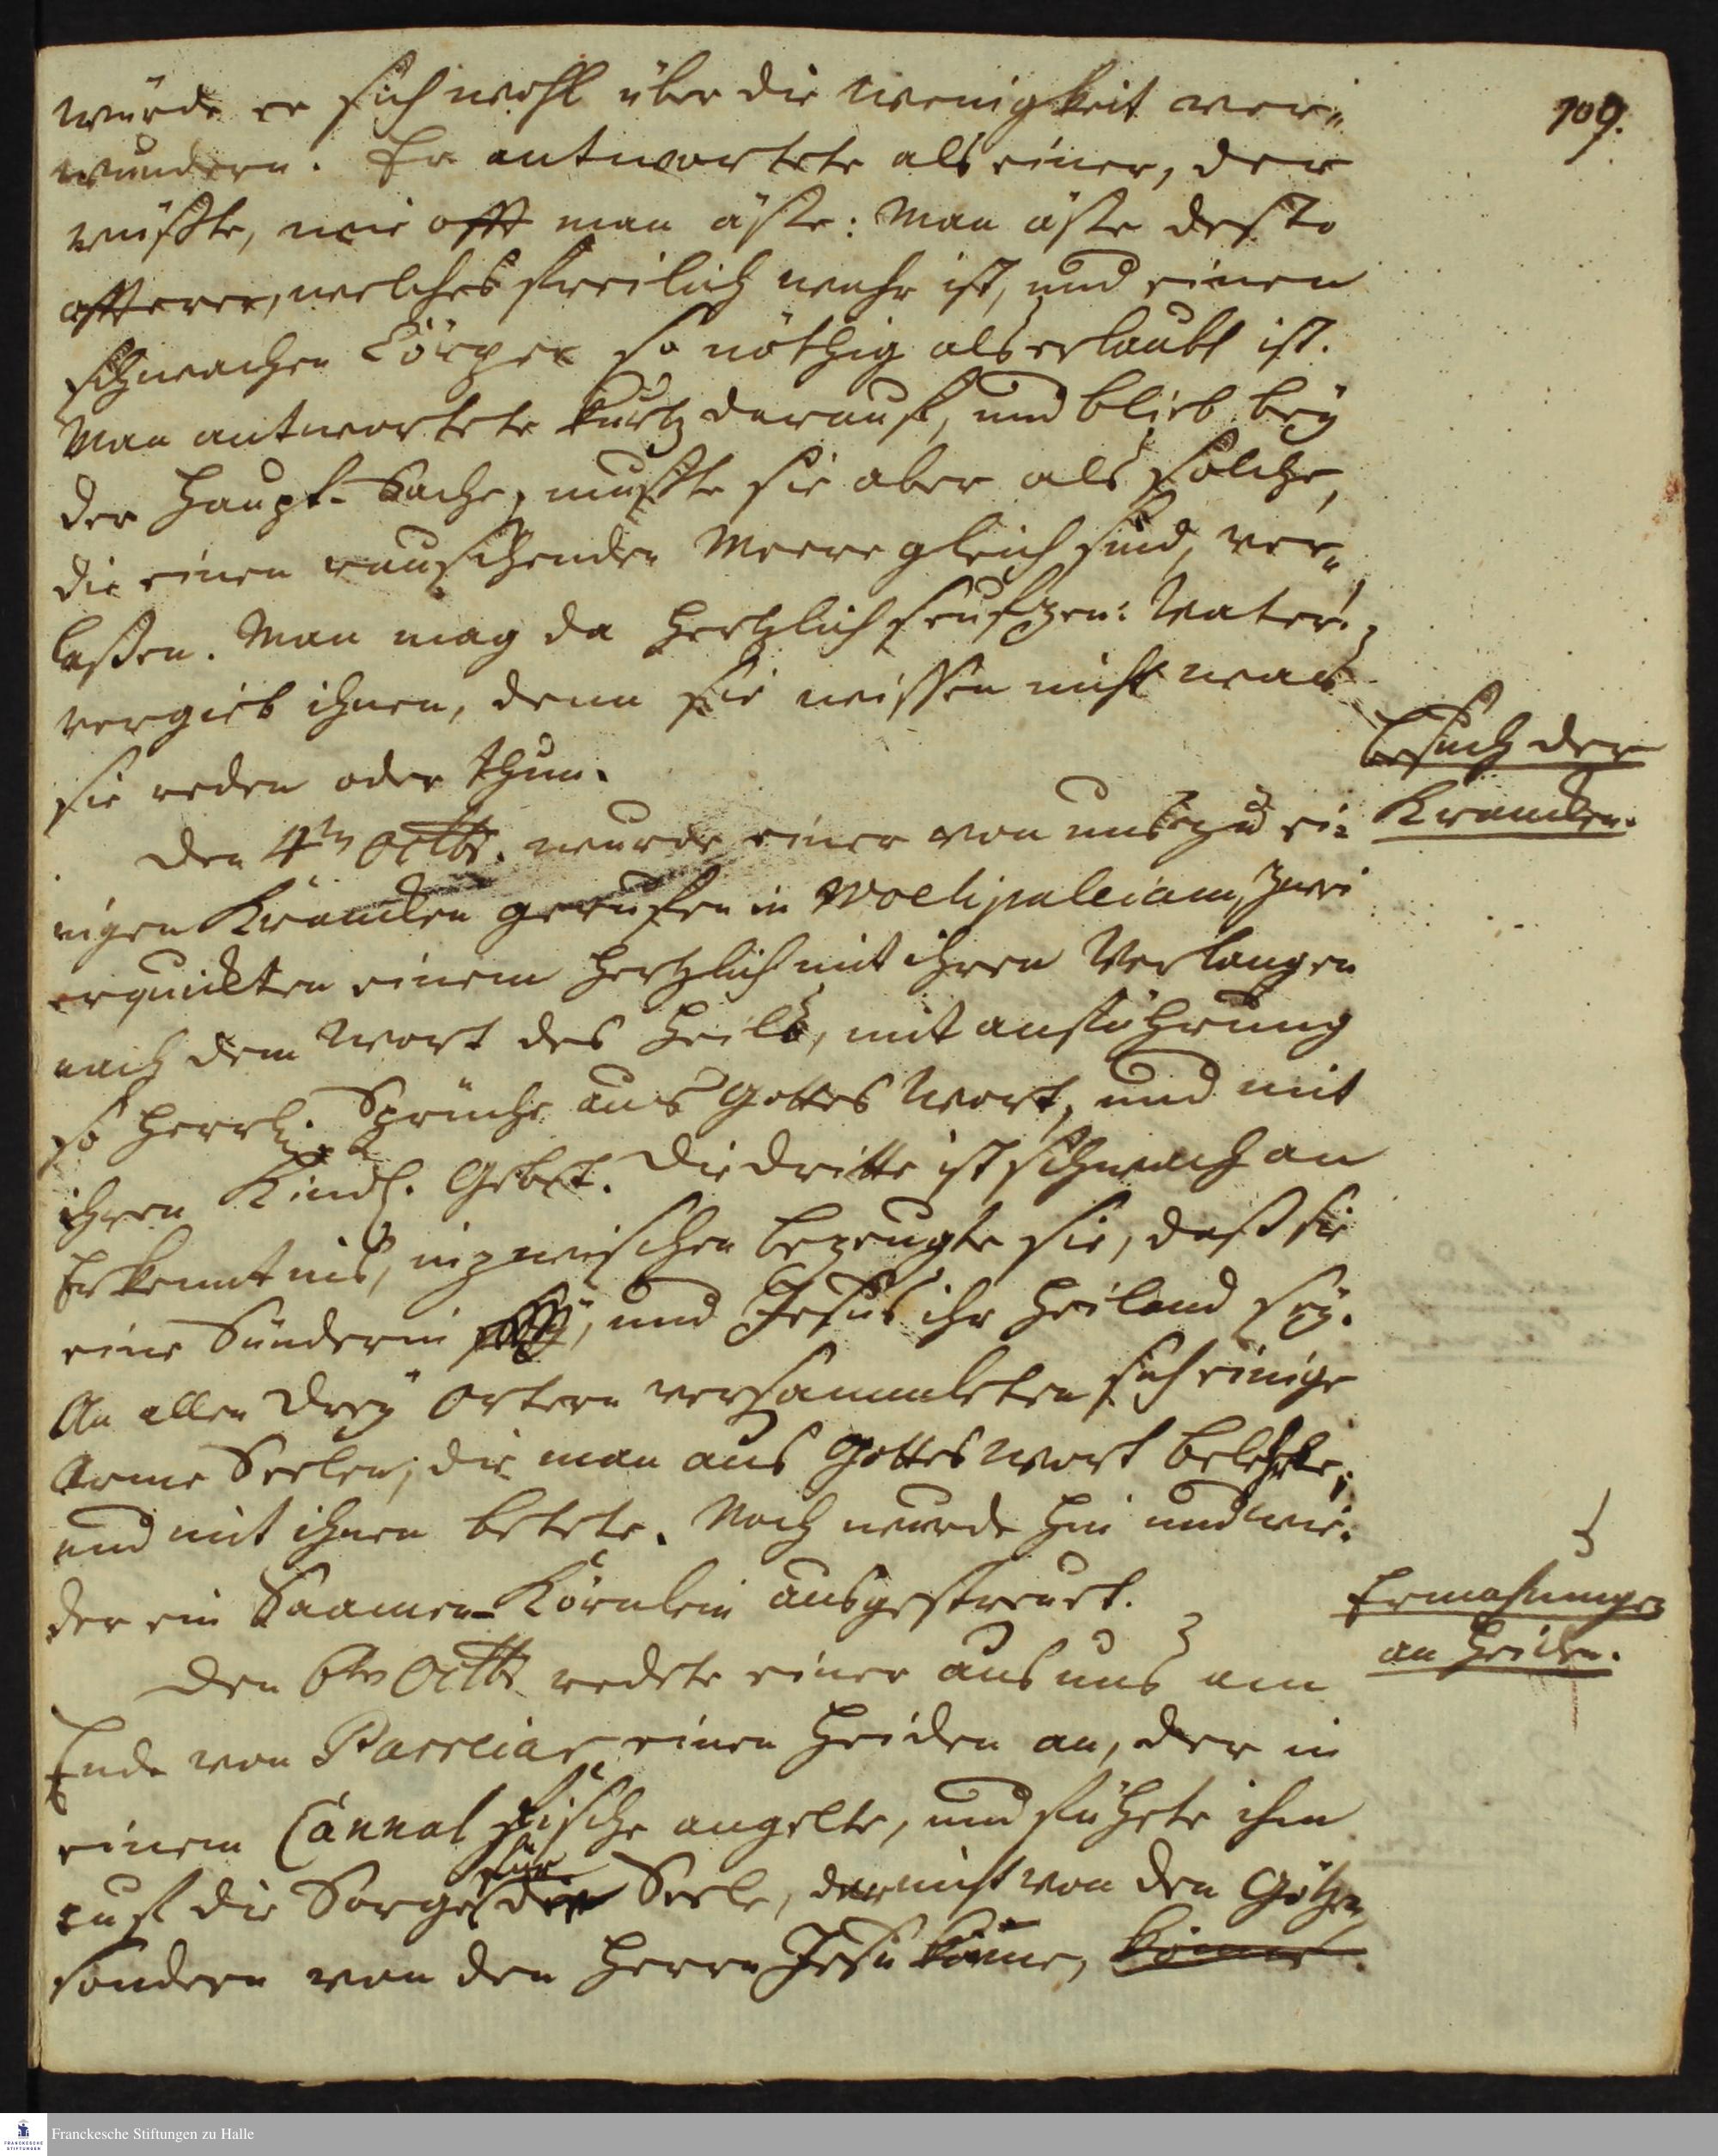 109.
würde er sich wohl über die Wenigkeit ver„
wundern. Er antwortete als einer, der
wüßte, wie offt man äße: Man äße desto
offterer, welches freilich wahr ist, und einen
schwachen Cörper so nöthig als erlaubt ist.
Man antwortete kurtz darauf, und blieb bey
der Haupt-Sache, mußte sie aber als solche,
die einen rauschenden Meere gleich sind, ver„
laßen. Man mag da hertzlich seufzen: Vater!
vergieb ihnen, denn sie wissen nicht was
sie reden oder thun.
Besuch der
Krancken.
Den 4ten Octbr. wurde einer von uns zu ei-
nigen Krancken gerufen in Woelipaleiam, zwei
erquickten einem hertzlich mit ihren Verlangen
nach dem Wort des Heils, mit anführung
so herrl. Sprüche aus Gottes Wort, und mit
ihren Kindl. Gebet. Die dritte ist schwach an
Erkenntnis, inzwischen bezeugte sie, daß sie
eine Sünderin sey, und Jesus ihr Heiland sey.
An allen drey Ortern versammleten sich einige
Arme Seelen, die man aus Gottes Wort belehrte,
und mit ihnen betete. Noch wurde hin und wie-
der ein Saamen-Körnlein ausgestreuet.
Ermahnungen
an Heiden.
Den 6ten Octbr redete einer aus uns am
Ende von Parreiar einen Heiden an, der in
einem Cannal Fische angelte, und führte ihn
auf die Sorge für der Seele, der nicht von den Götzen
sondern von den Herrn Jesu käme, käme.
Franckesche Stiftungen zu Halle